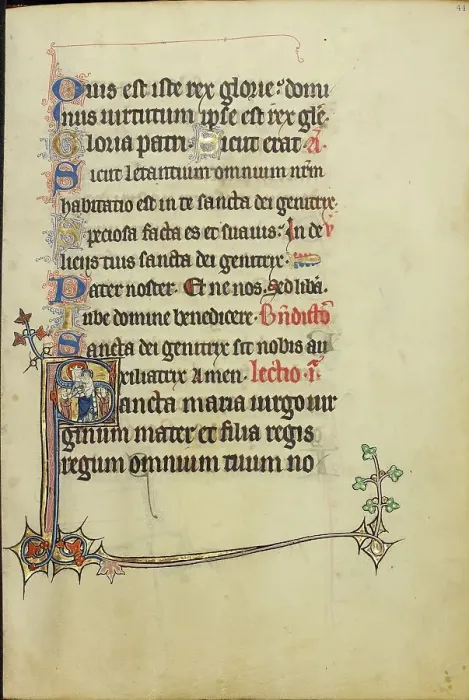 44
Quis est iste rex glorie? domi
nus uirtutum ipse est rex glē.
Gloria patri. Sicut erat. A.
Sicut letantium omnium nr̄m
habitatio est in te sancta dei genitrix.
Speciosa facta es et suauis: In de v
liciis tuis sancta dei genitrix.
Pater noster. Et ne nos. Sed libā.
Iube domine benedicere. Bn̄dictō
Sancta dei genitrix sit nobis au
xiliatrix Amen. lectio .i.
Sancta maria uirgo uir
ginum mater et filia regis
regum omnium tuum no